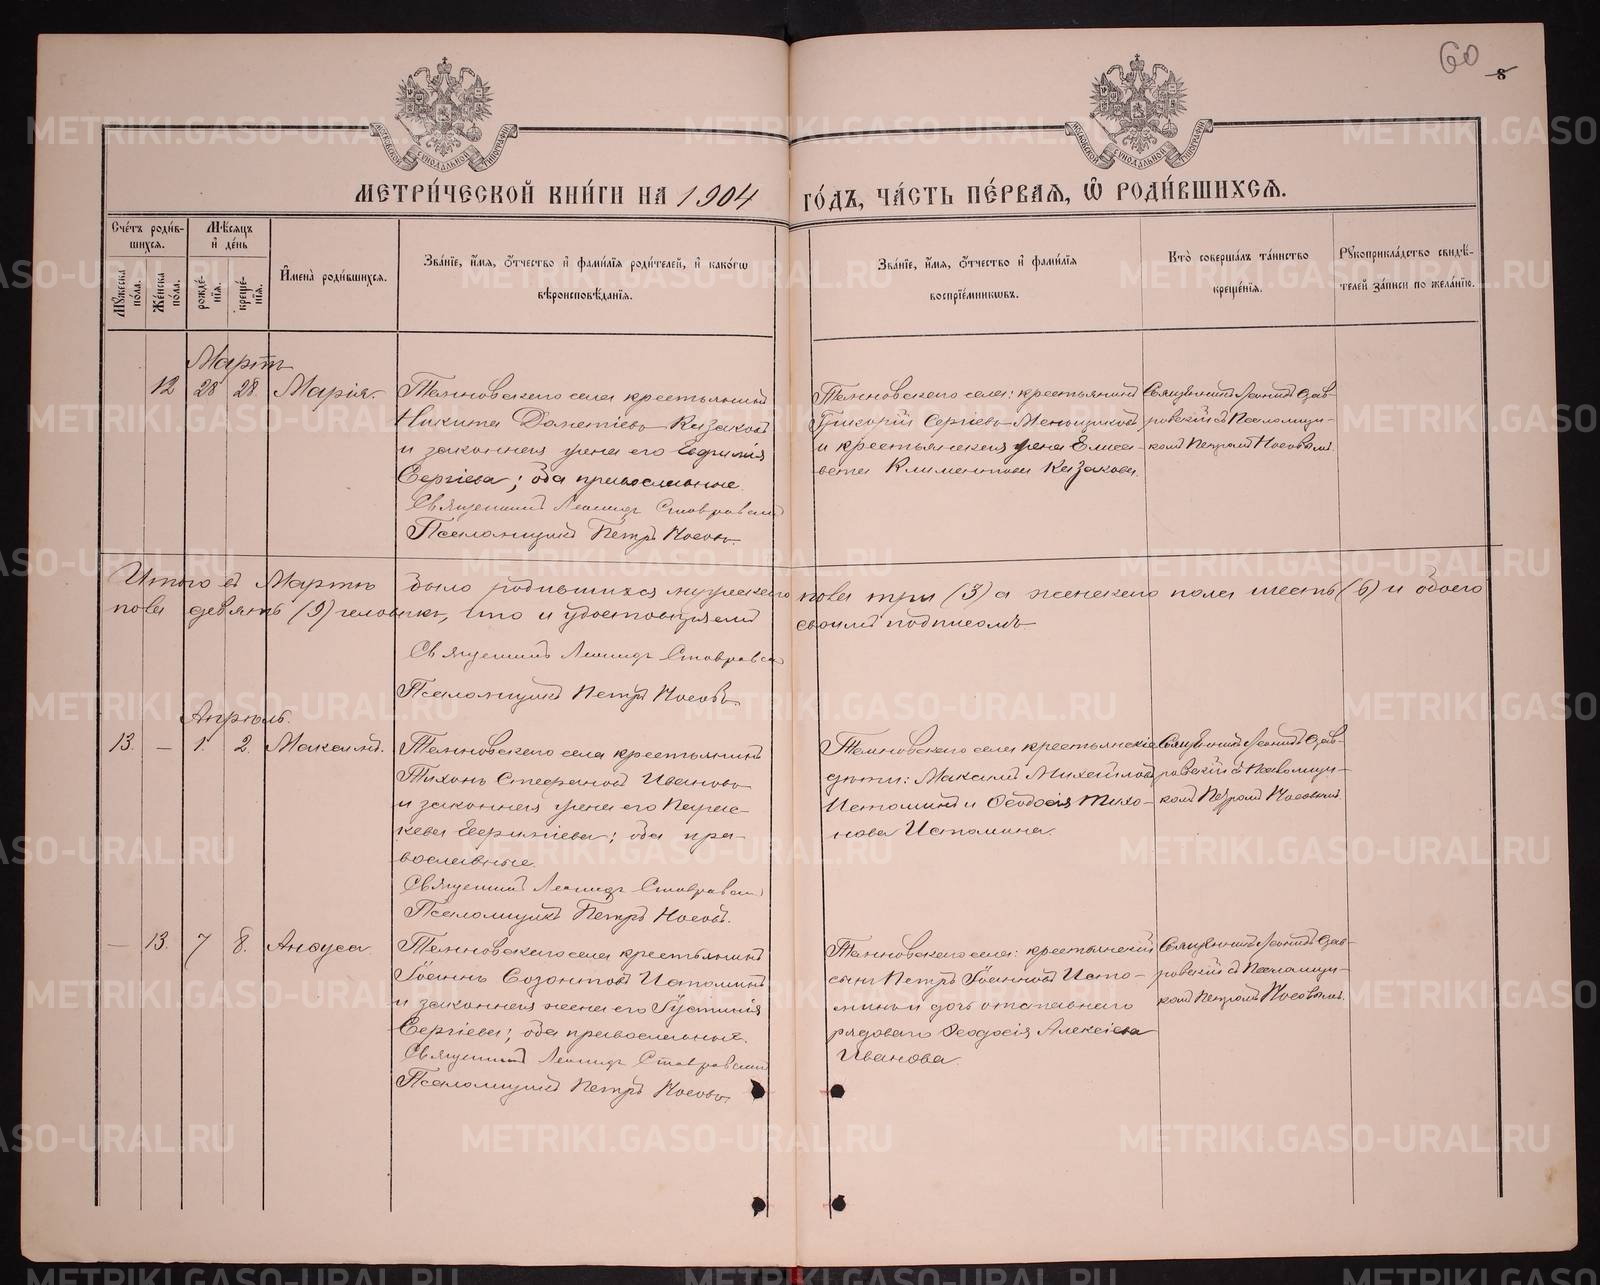 60
8
МОСКОВСКОЙ СУНОДАЛЬНОЙ ТИПОГРАФІИ
МОСКОВСКОЙ СУНОДАЛЬНОЙ ТИПОГРАФІИ
МЕТРИ́ЧЕСКОЙ КНИ́ГИ НА 1904 ГО́ДЪ, ЧА́СТЬ ПЕ́РВАЯ, Ѡ РОДИ́ВШИХСЯ.
Сче́тъ роди́в-
шихся.
Му́жеска по́ла.
Же́нска по́ла.
Мѣ́сяцъ
и҆ де́нь
рожде́-
нїя.
креще́-
нїя.
И҆мена̀ роди́вшихся.
Зва́нїе, и҆́мя, ѻ҆́тчество и҆ фами́лїя роди́телей, и҆ како́гѡ
вѣроисповѣ́данїя.
Зва́нїе, и҆́мя, ѻ҆́тчество и҆ фами́лїя
воспрїе́мникѡвъ.
Кто̀ соверша́лъ та́инство
креще́нїя.
Рꙋкоприкла́дство свидѣ́-
телей за́писи по жела́нїю.
Мартъ
12 28 28. Марія.
Темновскаго села крестьянинъ
Никита Дометіевъ Казаковъ
и законная жена его Евфимія
Сергіева; оба православные.
Священникъ Леонидъ Ставровскій
Псаломщикъ Петръ Носовъ.
Темновскаго села: крестьянинъ
Григорій Сергіевъ Меньшиковъ
и крестьянская жена Елиса-
вета Климентова Казакова.
Священникъ Леонидъ Став-
ровскій съ Псаломщи-
комъ Петромъ Носовымъ.
Итого въ Мартѣ было родившихся мужескаго пола три (3) а женскаго пола шесть (6) и обоего
пола девять (9) человѣкъ, что и удостовѣряемъ своимъ подписомъ.
Священникъ Леонидъ Ставровскій
Псаломщикъ Петръ Носовъ
Апрѣль.
13. — 1. 2. Максимъ.
Темновскаго села крестьянинъ
Тихонъ Стефановъ Ивановъ
и законная жена его Парас-
кева Евфиміева; оба пра-
вославные.
Священникъ Леонидъ Ставровскій
Псаломщикъ Петръ Носовъ.
Темновскаго села крестьянскіе
дѣти: Максимъ Михайловъ
Истоминъ и Ѳеодосія Тихо-
нова Истомина.
Священникъ Леонидъ Став-
ровскій съ Псаломщи-
комъ Петромъ Носовымъ.
— 13. 7 8. Анѳуса
Темновскаго села крестьянинъ
Іоаннъ Созонтовъ Истоминъ
и законная жена его Іустинія
Сергіева; оба православные.
Священникъ Леонидъ Ставровскій
Псаломщикъ Петръ Носовъ.
Темновскаго села: крестьянскій
сынъ Петръ Іоанновъ Исто-
минъ и дочь отставнаго
рядоваго Ѳеодосія Алексіева
Иванова.
Священникъ Леонидъ Став-
ровскій съ Псаломщи-
комъ Петромъ Носовымъ.
METRIKI.GASO-URAL.RU